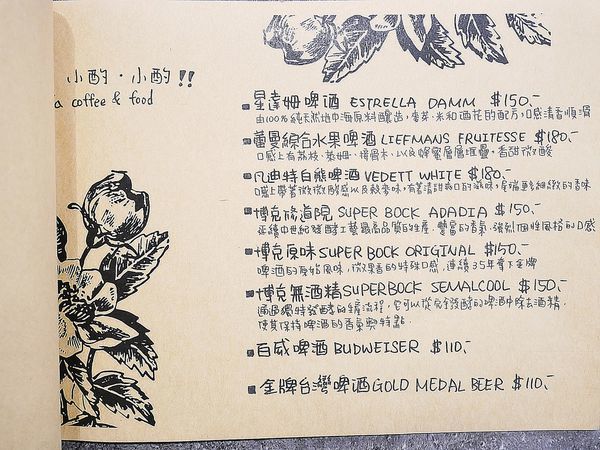 小酌·小酌!!
a coffee & food
星達姆啤酒 ESTRELLA DAMM $150.-
由100%純天然地中海原料釀造,麥芽、米和酒花的配方,口感清香順滑
蕾曼綜合水果啤酒 LIEFMANS FRUITESSE $180.-
口感上有荔枝、莓姆、接骨木、以及蜂蜜層層堆疊,香甜微酸
凡迪特白熊啤酒 VEDETT WHITE $180.-
口感上帶著微微酸感以及穀麥味,有著清甜爽口的滋味,尾端更細緻的香味
博克修道院 SUPER BOCK ADADIA $150.-
延續中世紀發酵工藝與高品質的生產,豐富的香氣,強烈個性風格的口感
博克原味 SUPER BOCK ORIGINAL $150.-
啤酒的原始風味,微果香的特殊口感,連續35年奪下金牌
博克無酒精 SUPERBOCK SEMALCOOL $150.-
通過獨特發酵的生產流程,它可以從完全發酵的啤酒中除去酒精.
使其保持啤酒的香氣與特點.
百威啤酒 BUDWEISER $110.-
金牌台灣啤酒 GOLD MEDAL BEER $110.-